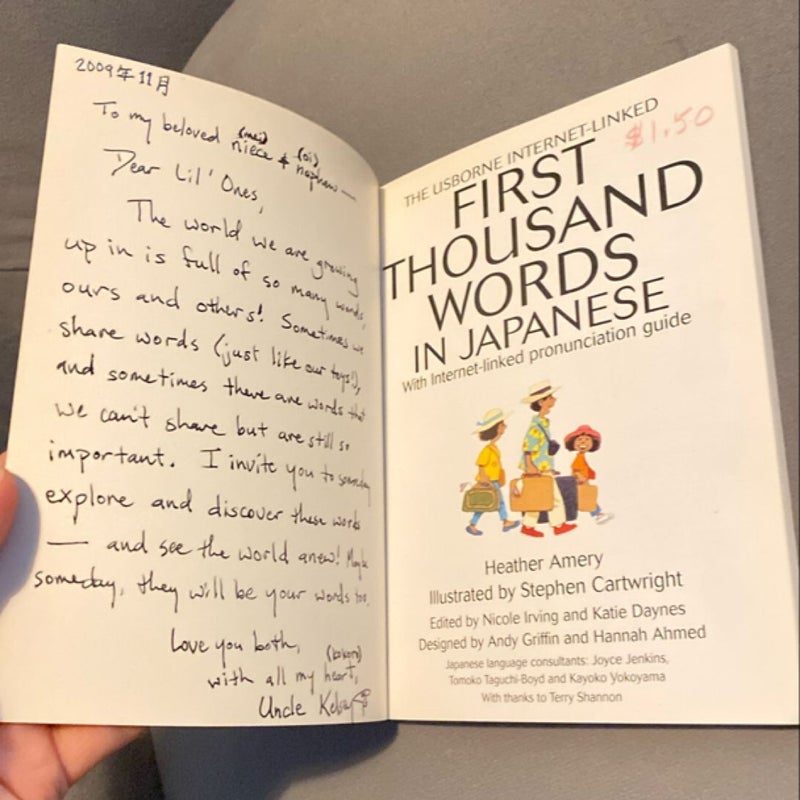 2009年11月
To my beloved niece (mei) & nephew (oi) —
Dear Lil' Ones,
The world we are growing
up in is full of so many words,
ours and others! Sometimes we
share words (just like our toys!),
and sometimes there are words that
we can't share but are still so
important. I invite you to someday
explore and discover these words
— and see the world anew! Maybe
someday, they will be your words too.
Love you both,
with all my heart, (kokoro)
Uncle
$1.50
THE USBORNE INTERNET-LINKED
FIRST
THOUSAND
WORDS
IN JAPANESE
With Internet-linked pronunciation guide
Heather Amery
Illustrated by Stephen Cartwright
Edited by Nicole Irving and Katie Daynes
Designed by Andy Griffin and Hannah Ahmed
Japanese language consultants: Joyce Jenkins,
Tomoko Taguchi-Boyd and Kayoko Yokoyama
With thanks to Terry Shannon